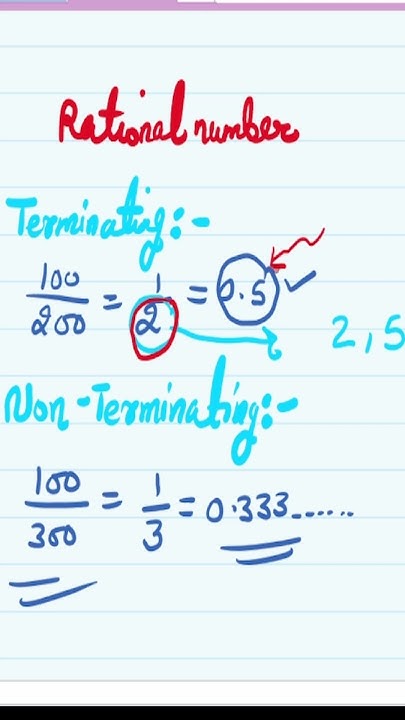 Rational number
Terminating:-
100/200 = 1/2 = 0.5 ✓
2, 5
Non-Terminating:-
100/300 = 1/3 = 0.333......